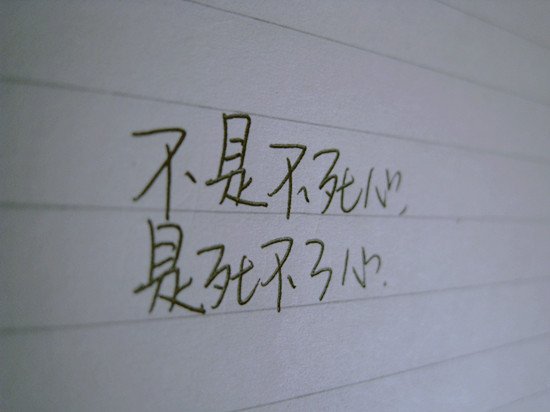 不是不死心,
是死不了心.